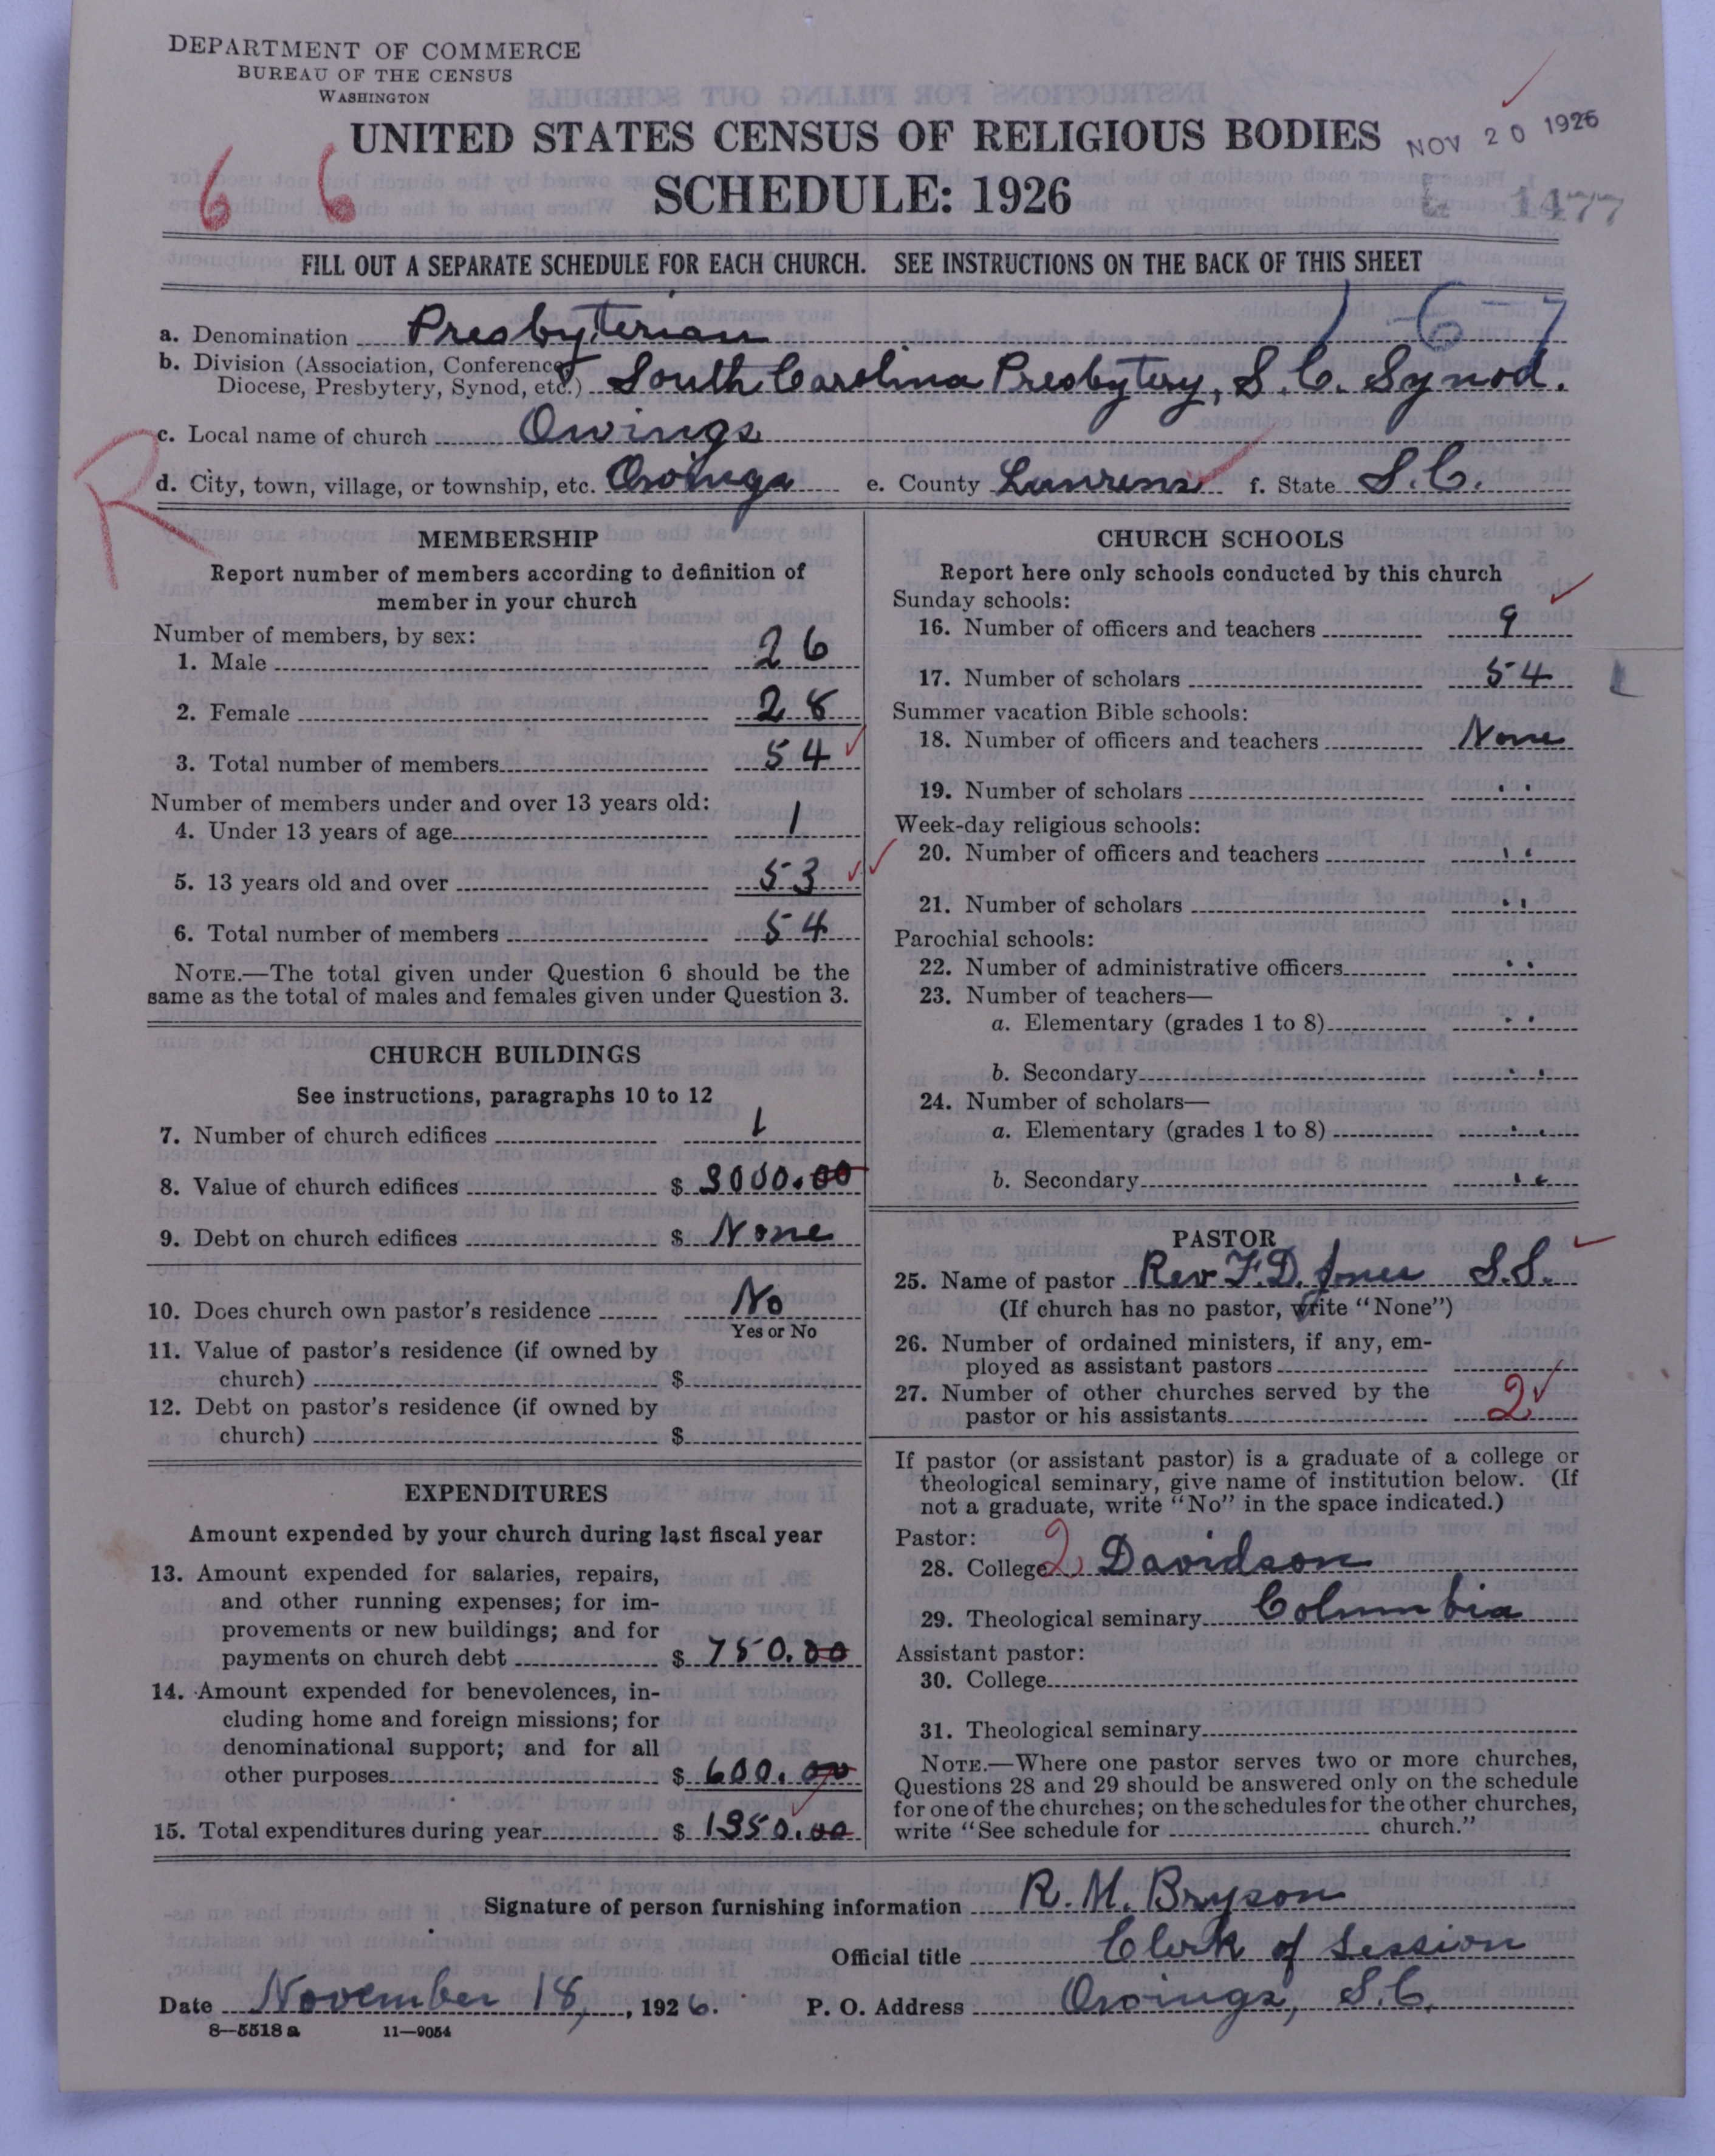 DEPARTMENT OF COMMERCE
BUREAU OF THE CENSUS
WASHINGTON
UNITED STATES CENSUS OF RELIGIOUS BODIES
NOV 20 1926
SCHEDULE: 1926
1477
6 6
FILL OUT A SEPARATE SCHEDULE FOR EACH CHURCH. SEE INSTRUCTIONS ON THE BACK OF THIS SHEET
1-6-7
a. Denomination Presbyterian
b. Division (Association, Conference,
Diocese, Presbytery, Synod, etc.) South Carolina Presbytery, S.C. Synod.
c. Local name of church Owings
R
d. City, town, village, or township, etc. Owings e. County Laurens f. State S.C.
MEMBERSHIP
Report number of members according to definition of
member in your church
Number of members, by sex:
1. Male 26
2. Female 28
3. Total number of members 54
Number of members under and over 13 years old:
4. Under 13 years of age 1
5. 13 years old and over 53
6. Total number of members 54
NOTE.—The total given under Question 6 should be the
same as the total of males and females given under Question 3.
CHURCH BUILDINGS
See instructions, paragraphs 10 to 12
7. Number of church edifices 1
8. Value of church edifices $ 3000.00
9. Debt on church edifices $ None
10. Does church own pastor's residence No
Yes or No
11. Value of pastor's residence (if owned by
church) $
12. Debt on pastor's residence (if owned by
church) $
EXPENDITURES
Amount expended by your church during last fiscal year
13. Amount expended for salaries, repairs,
and other running expenses; for im-
provements or new buildings; and for
payments on church debt $ 750.00
14. Amount expended for benevolences, in-
cluding home and foreign missions; for
denominational support; and for all
other purposes $ 600.00
15. Total expenditures during year $ 1350.00
CHURCH SCHOOLS
Report here only schools conducted by this church
Sunday schools:
16. Number of officers and teachers 9
17. Number of scholars 54
Summer vacation Bible schools:
18. Number of officers and teachers None
19. Number of scholars "
Week-day religious schools:
20. Number of officers and teachers "
21. Number of scholars "
Parochial schools:
22. Number of administrative officers "
23. Number of teachers—
a. Elementary (grades 1 to 8) "
b. Secondary "
24. Number of scholars—
a. Elementary (grades 1 to 8) "
b. Secondary "
PASTOR
25. Name of pastor Rev F.D. Jones S.S.
(If church has no pastor, write "None")
26. Number of ordained ministers, if any, em-
ployed as assistant pastors
27. Number of other churches served by the
pastor or his assistants 2
If pastor (or assistant pastor) is a graduate of a college or
theological seminary, give name of institution below. (If
not a graduate, write "No" in the space indicated.)
Pastor:
28. College 2 Davidson
29. Theological seminary Columbia
Assistant pastor:
30. College
31. Theological seminary
NOTE.—Where one pastor serves two or more churches,
Questions 28 and 29 should be answered only on the schedule
for one of the churches; on the schedules for the other churches,
write "See schedule for church."
Signature of person furnishing information R. M. Bryson
Official title Clerk of Session
Date November 18, 1926. P. O. Address Owings, S.C.
8—5518 a 11—9054